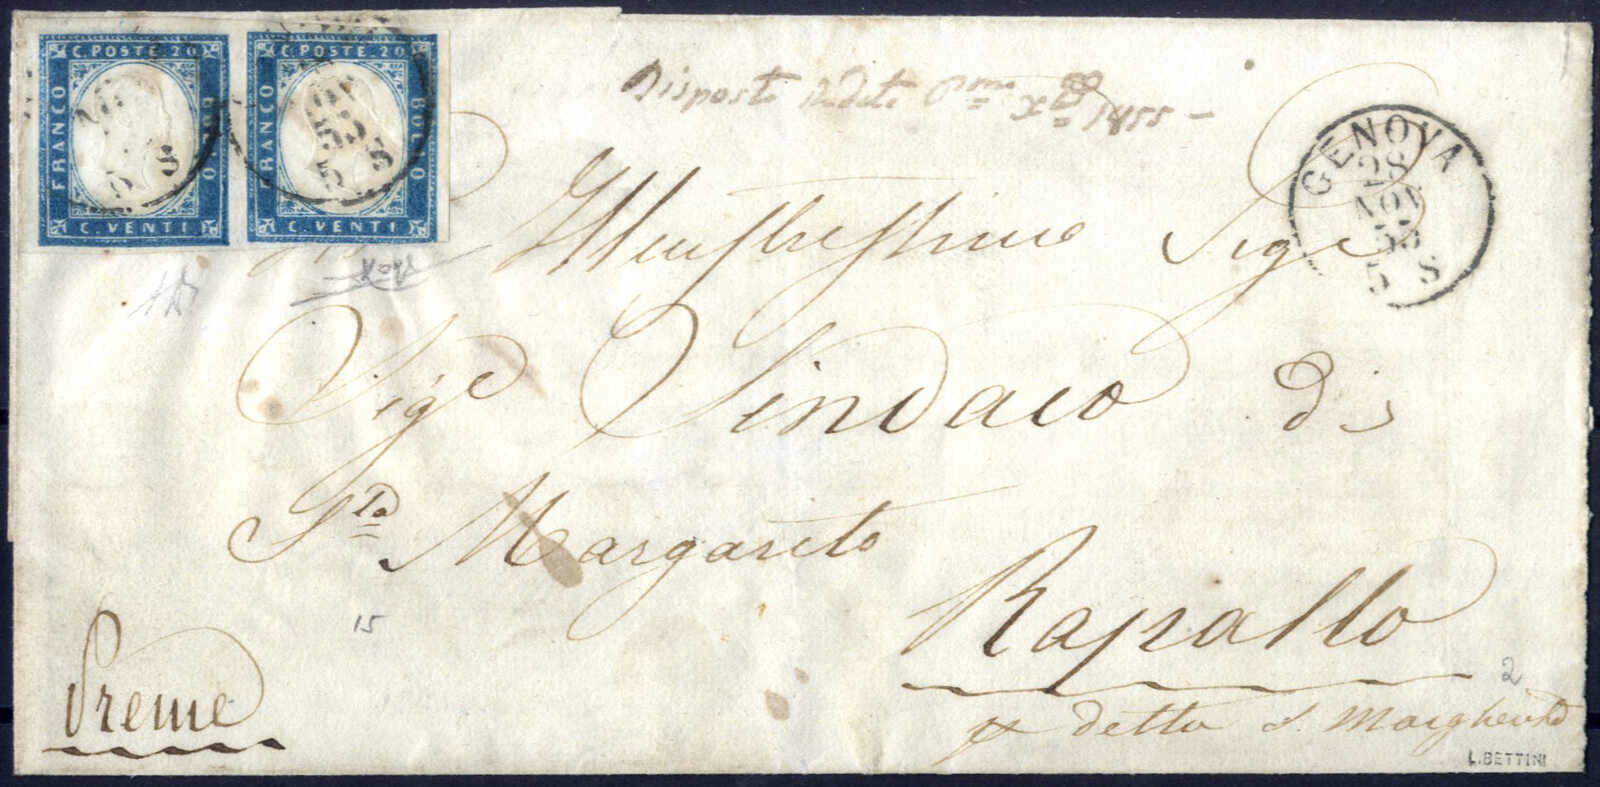 C. POSTE 20
FRANCO
BOLLO
C. VENTI
C. POSTE 20
FRANCO
BOLLO
C. VENTI
Risposto 1855
GENOVA
28
NOV
55
5 S
Illustrissimo Sigr
Sigr Sindaco di
Sta Margarita
Rapallo
Preme
15
2
detto S. Margherita
L. BETTINI